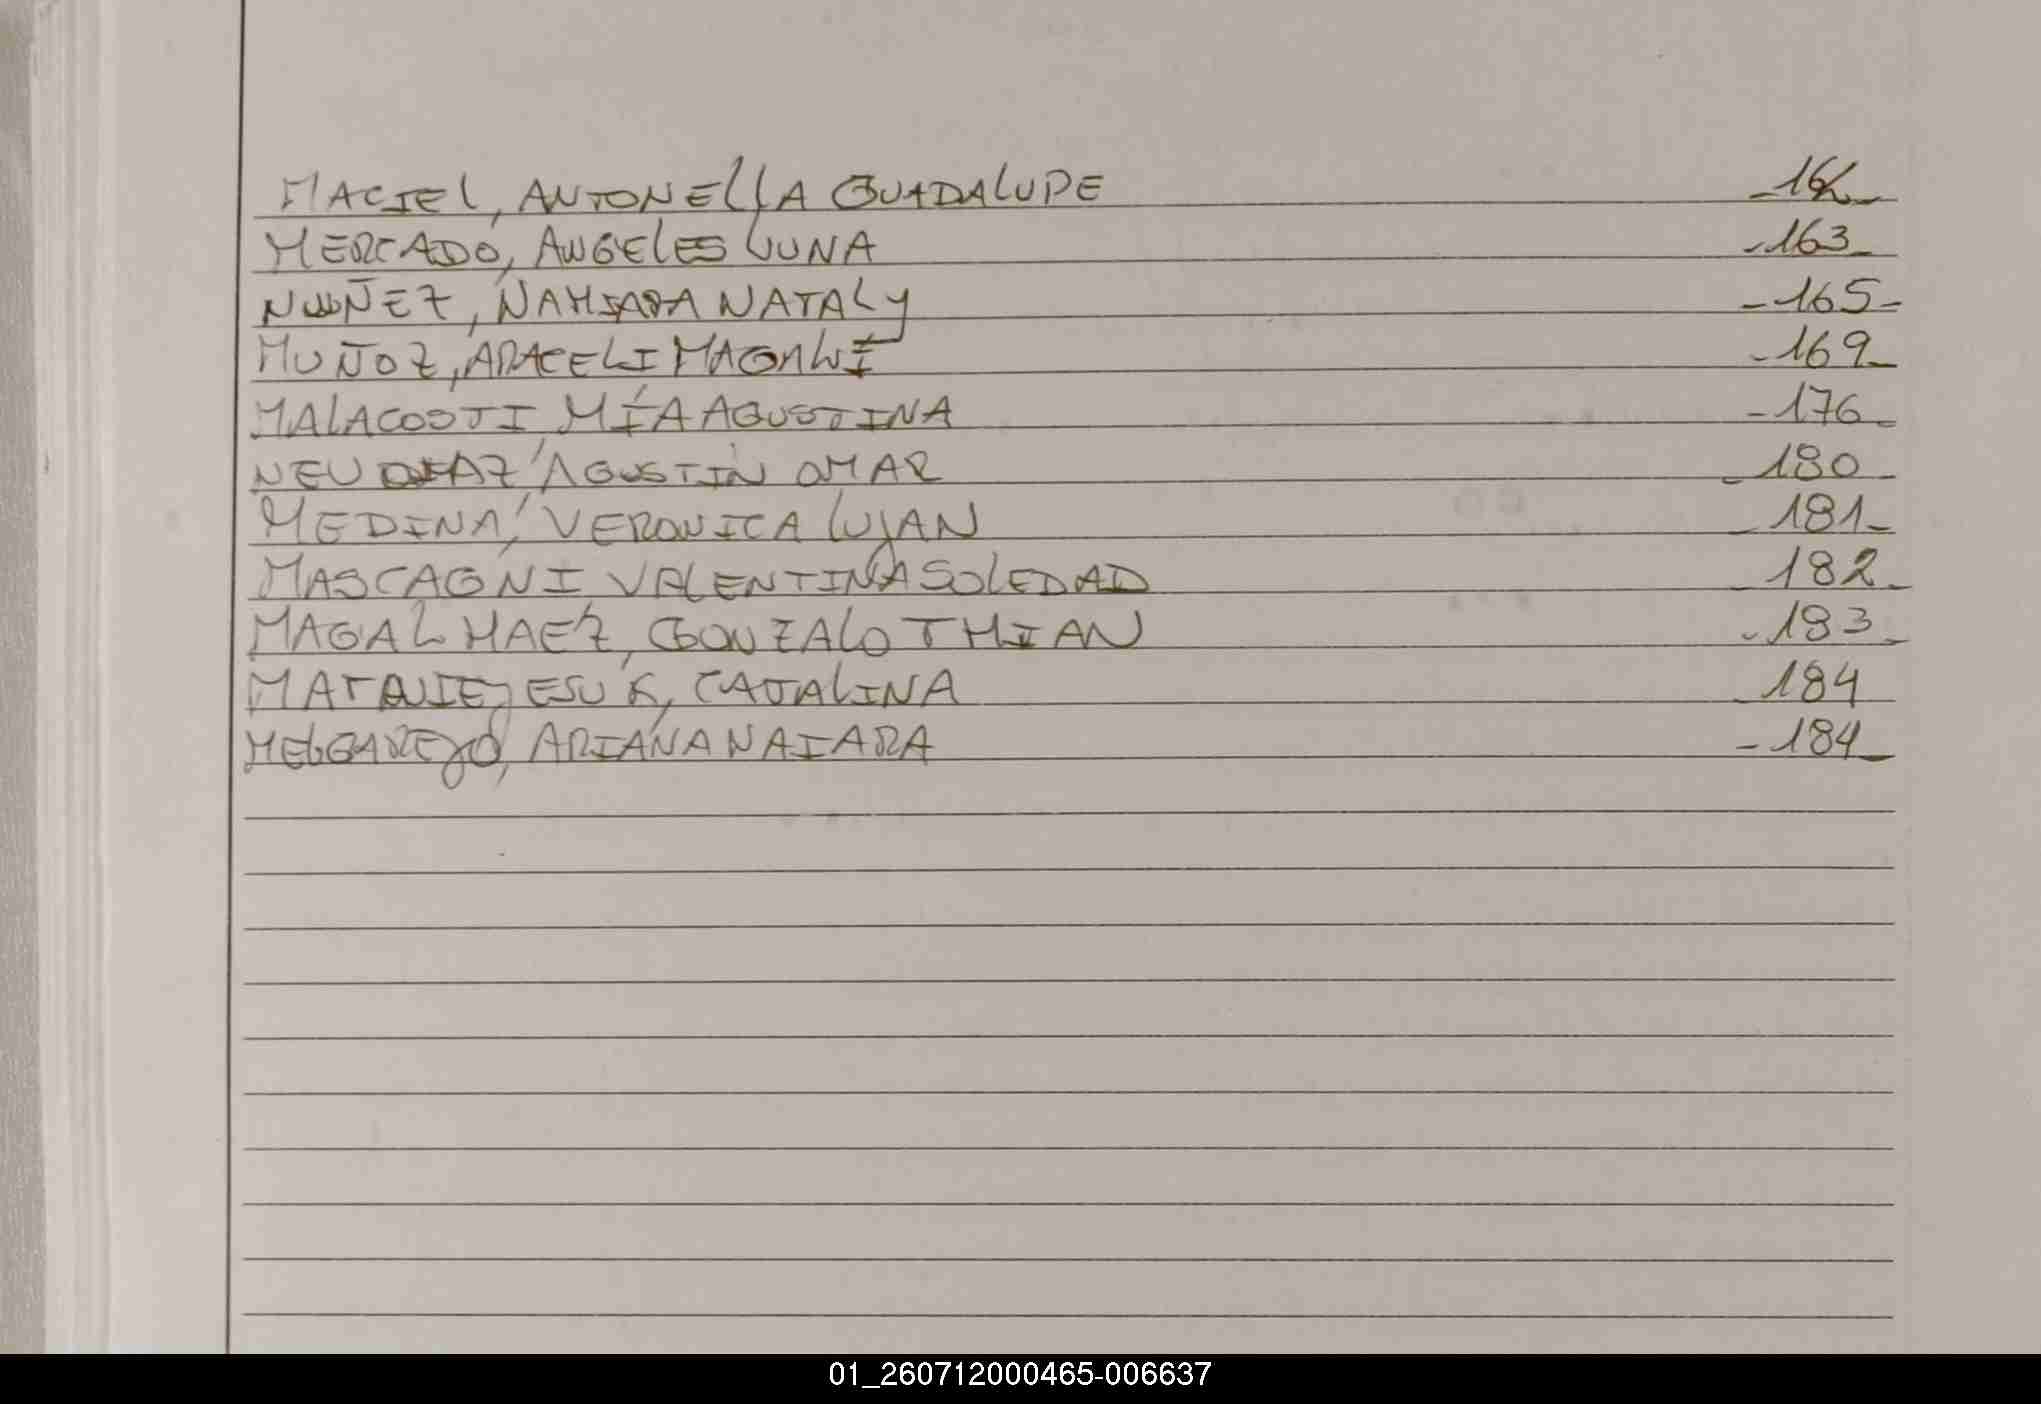 MACIEL, ANTONELLA GUADALUPE -16
MERCADO, ANGELES LUNA -163-
NUÑEZ, NAHIARA NATALY -165-
MUÑOZ, ARACELI MAGALÍ -169-
MALACOSTI, MÍA AGUSTINA -176-
NEU DIAZ, AGUSTÍN OMAR -180-
MEDINA, VERONICA LUJAN -181-
MASCAGNI VALENTINA SOLEDAD -182-
MAGALHAEZ, GONZALO THIAN -183-
CATALINA -184
MELGAREJO, ARIANA NAIARA -184-
01_260712000465-006637